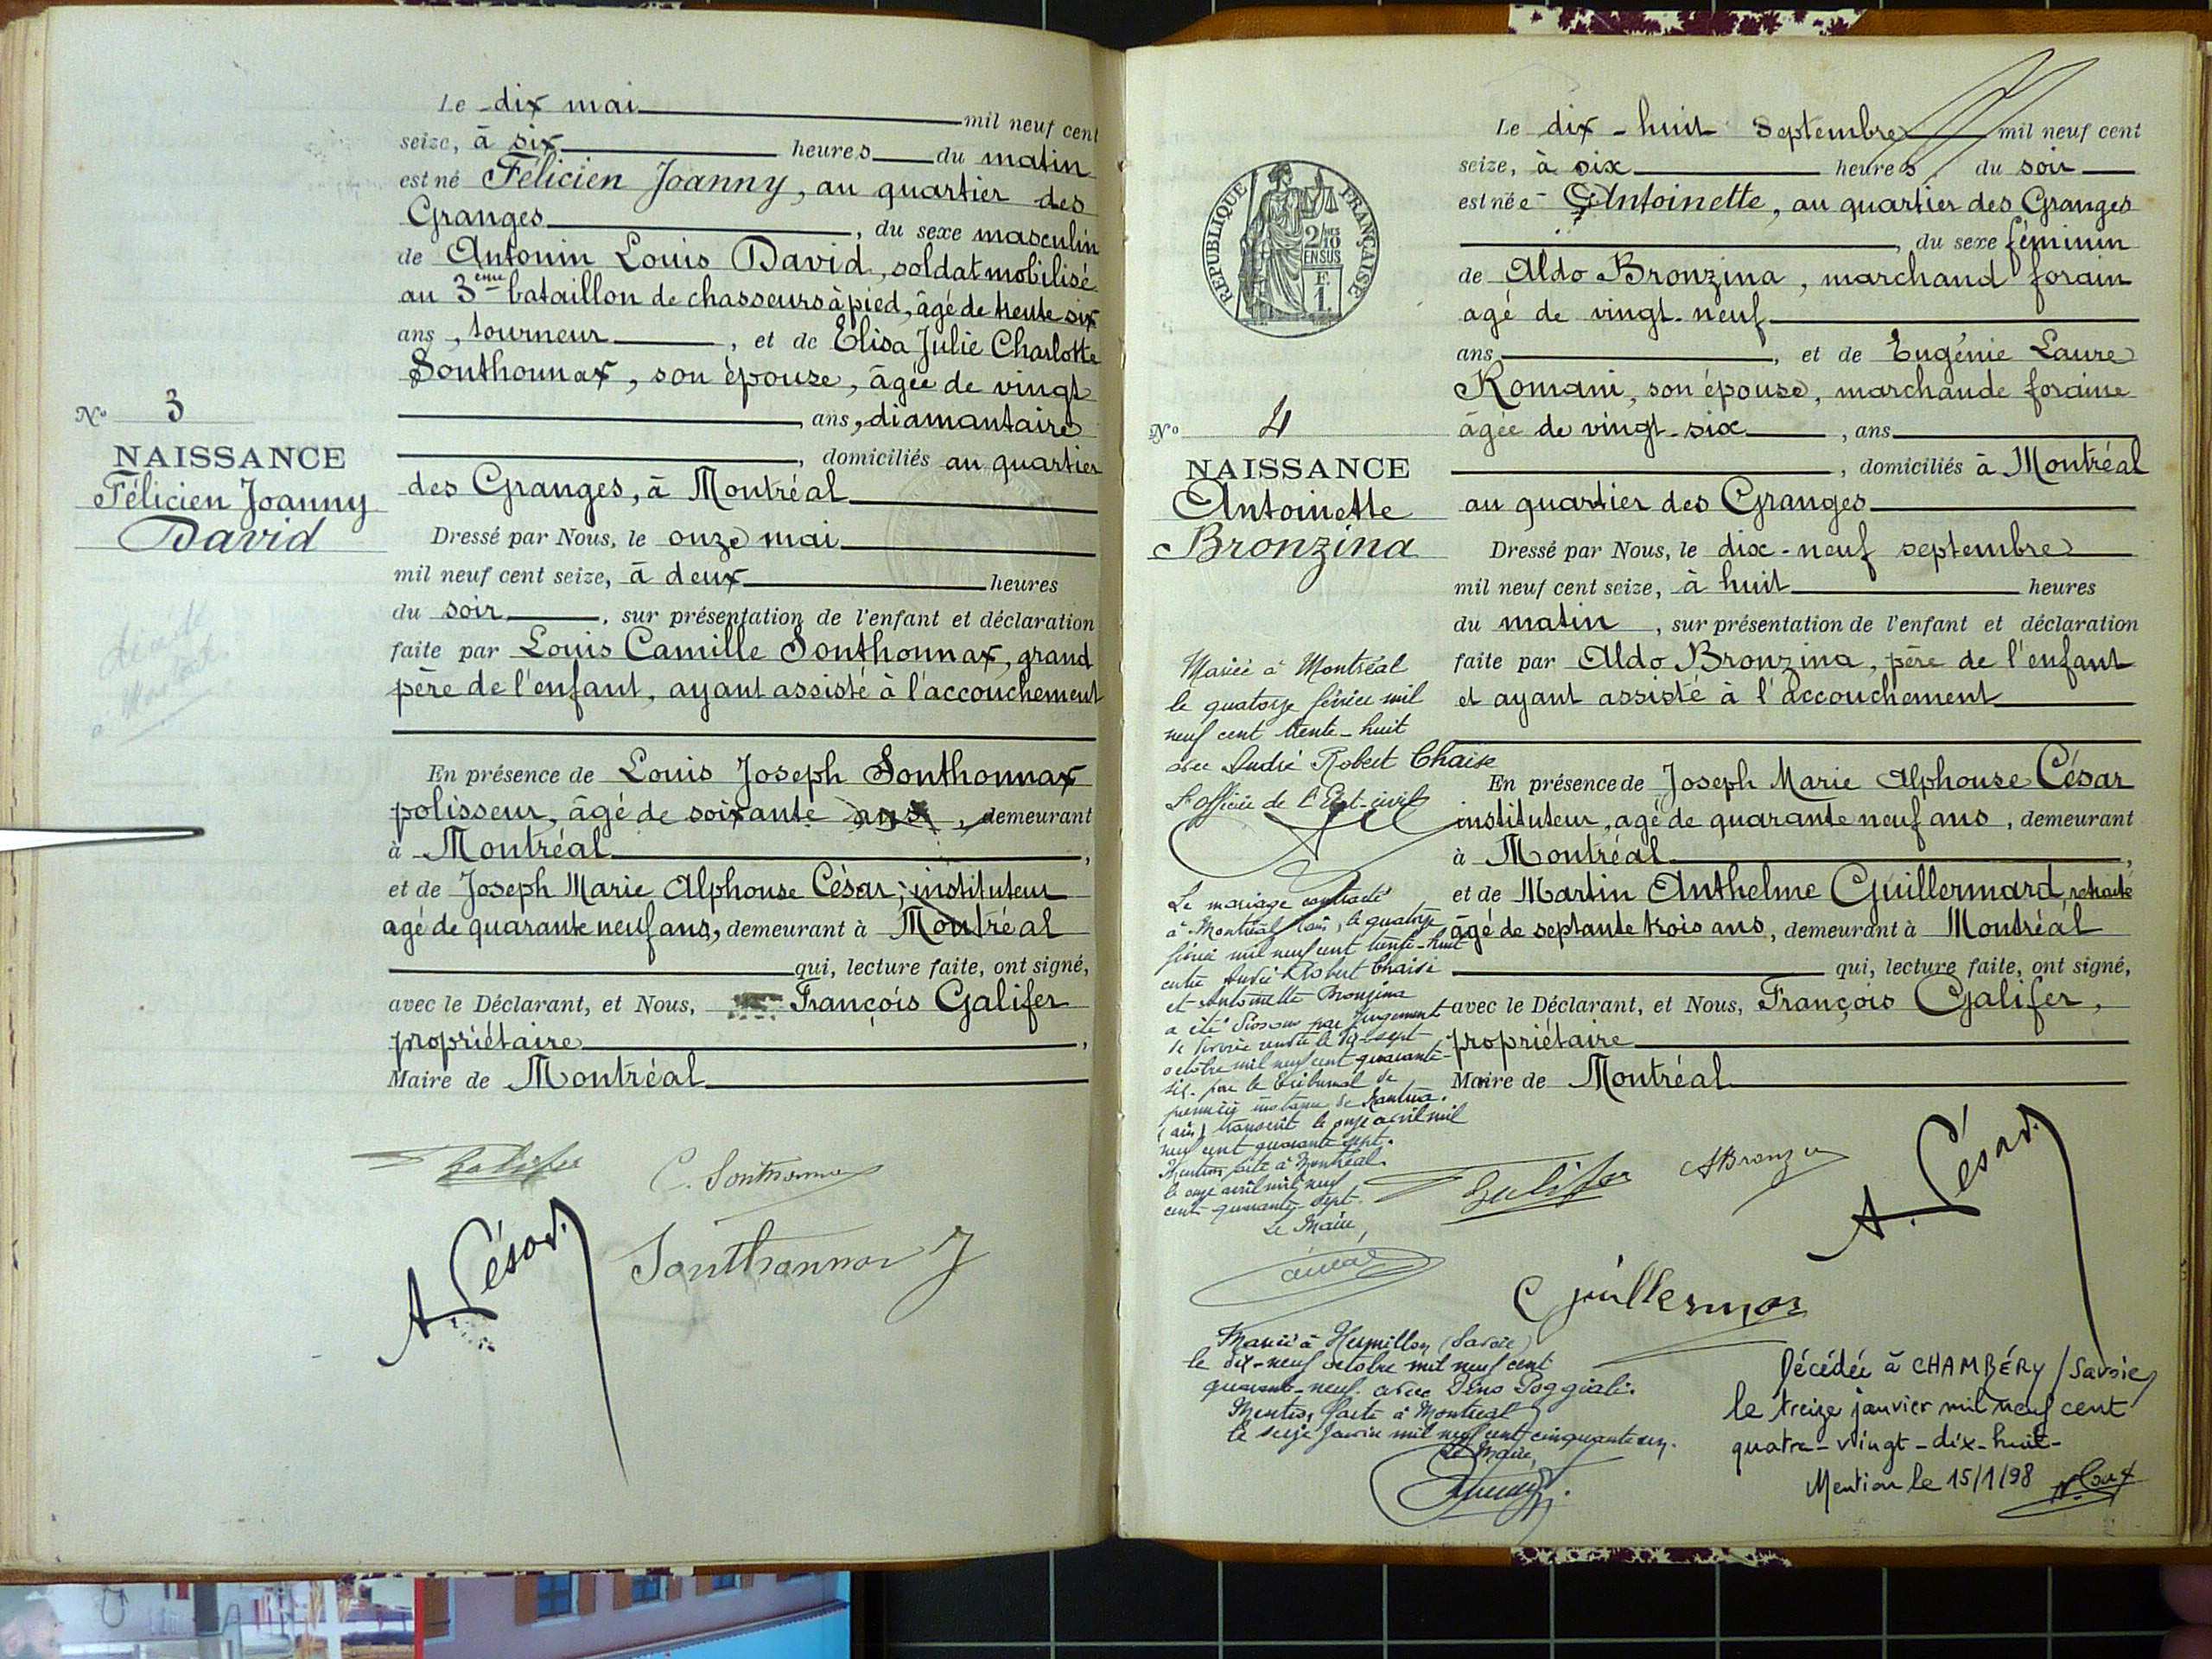 Le dix mai mil neuf cent
seize, à six heures du matin
est né Félicien Joanny, au quartier des
Granges, du sexe masculin
de Antonin Louis David, soldat mobilisé
au 3ème bataillon de chasseurs à pied, âgé de trente six
ans, tourneur, et de Elisa Julie Charlotte
Sonthonnax, son épouse, âgée de vingt
ans, diamantaire
, domiciliés au quartier
des Granges, à Montréal
Dressé par Nous, le onze mai
mil neuf cent seize, à deux heures
du soir, sur présentation de l'enfant et déclaration
faite par Louis Camille Sonthonnax, grand
père de l'enfant, ayant assisté à l'accouchement
En présence de Louis Joseph Sonthonnax
polisseur, âgé de soixante ans, demeurant
à Montréal,
et de Joseph Marie Alphonse César, instituteur
agé de quarante neuf ans, demeurant à Montréal
qui, lecture faite, ont signé,
avec le Déclarant, et Nous, François Galifer
propriétaire,
Maire de Montréal
N° 3
NAISSANCE
Félicien Joanny
David
Galifer
C. Sonthonnax
A. César
Sonthonnax J
Le dix-huit Septembre mil neuf cent
seize, à six heures du soir
est née Antoinette, au quartier des Granges
, du sexe féminin
de Aldo Bronzina, marchand forain
agé de vingt-neuf
ans, et de Eugénie Laure
Romani, son épouse, marchande foraine
âgée de vingt-six, ans
, domiciliés à Montréal
au quartier des Granges
Dressé par Nous, le dix-neuf septembre
mil neuf cent seize, à huit heures
du matin, sur présentation de l'enfant et déclaration
faite par Aldo Bronzina, père de l'enfant
et ayant assisté à l'accouchement
En présence de Joseph Marie Alphonse César
instituteur, agé de quarante neuf ans, demeurant
à Montréal,
et de Martin Anthelme Guillermard, retraité
âgé de septante trois ans, demeurant à Montréal
qui, lecture faite, ont signé,
avec le Déclarant, et Nous, François Galifer,
propriétaire
Maire de Montréal
REPUBLIQUE FRANÇAISE
2/10
EN SUS
F.
1.
N° 4
NAISSANCE
Antoinette
Bronzina
Mariée à Montréal
le quatorze février mil
neuf cent trente-huit
avec André Robert Chaise
L'officier de l'Etat-civil
Le mariage contracté
à Montréal (ain), le quatorze
février mil neuf cent trente-huit
entre André Robert Chaise
et Antoinette Bronzina
a été dissous par jugement
de divorce rendu le dix-sept
octobre mil neuf cent quarante-
six par le tribunal de
première instance de Nantua.
(ain) transcrit le onze avril mil
neuf cent quarante sept.
Mention faite à Montréal
le onze avril mil neuf
cent quarante-sept
Le Maire,
Galifer
ABronzina
A. César
Guillermoz
Marié à Hermillon (Savoie)
le dix-neuf octobre mil neuf cent
quarante-neuf avec Dino Poggiali.
Mention faite à Montréal
le seize janvier mil neuf cent cinquante un.
Le Maire,
Décédée à CHAMBÉRY (Savoie)
le treize janvier mil neuf cent
quatre-vingt-dix-huit-
Mention le 15/1/98